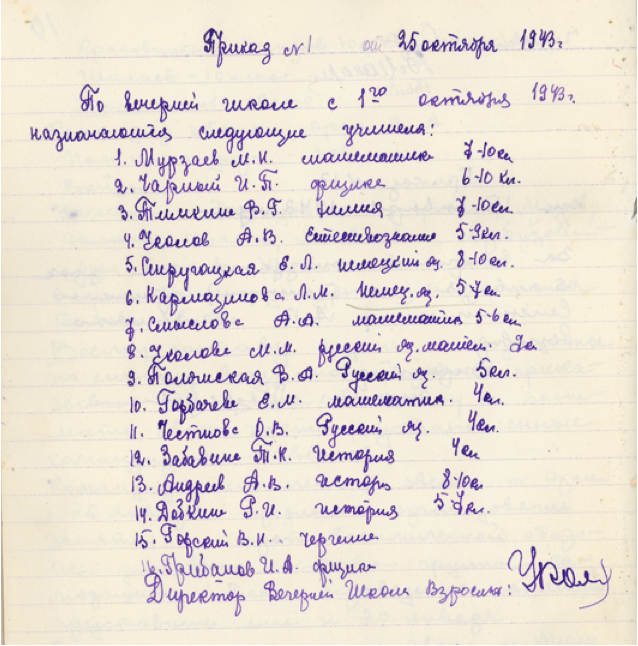 Приказ №1 от 25 октября 1943г.
По вечерней школе с 1го октября 1943г.
назначаются следующие учителя:
1. Мурзаев М.Н. математика 7-10кл
2. Чарный И.П. физика 6-10 кл.
3. Тимкин В.Г. химия 7-10кл.
4. Уколов А.В. Естествознание 5-9кл.
5. Е.Л. немецкий яз. 8-10кл.
6. Кармазинова Л.М. Немец. яз. 5-7кл
7. Смыслова А.А. математика 5-6кл
8. Уколова М.М. русский яз.
9. В.А. Русский яз. 5кл.
10. Горбачева Е.М. математика 4кл.
11. Честнова О.В. Русский яз. 4кл.
12. Забавина Т.К. История 4кл
13. Андреев А.В. История 8-10кл
14. Добкин Г.И. история 5-7кл.
15. Горский В.Н. черчение
16. Грибанов И.А. физика
Директор Вечерней Школы Взрослых: